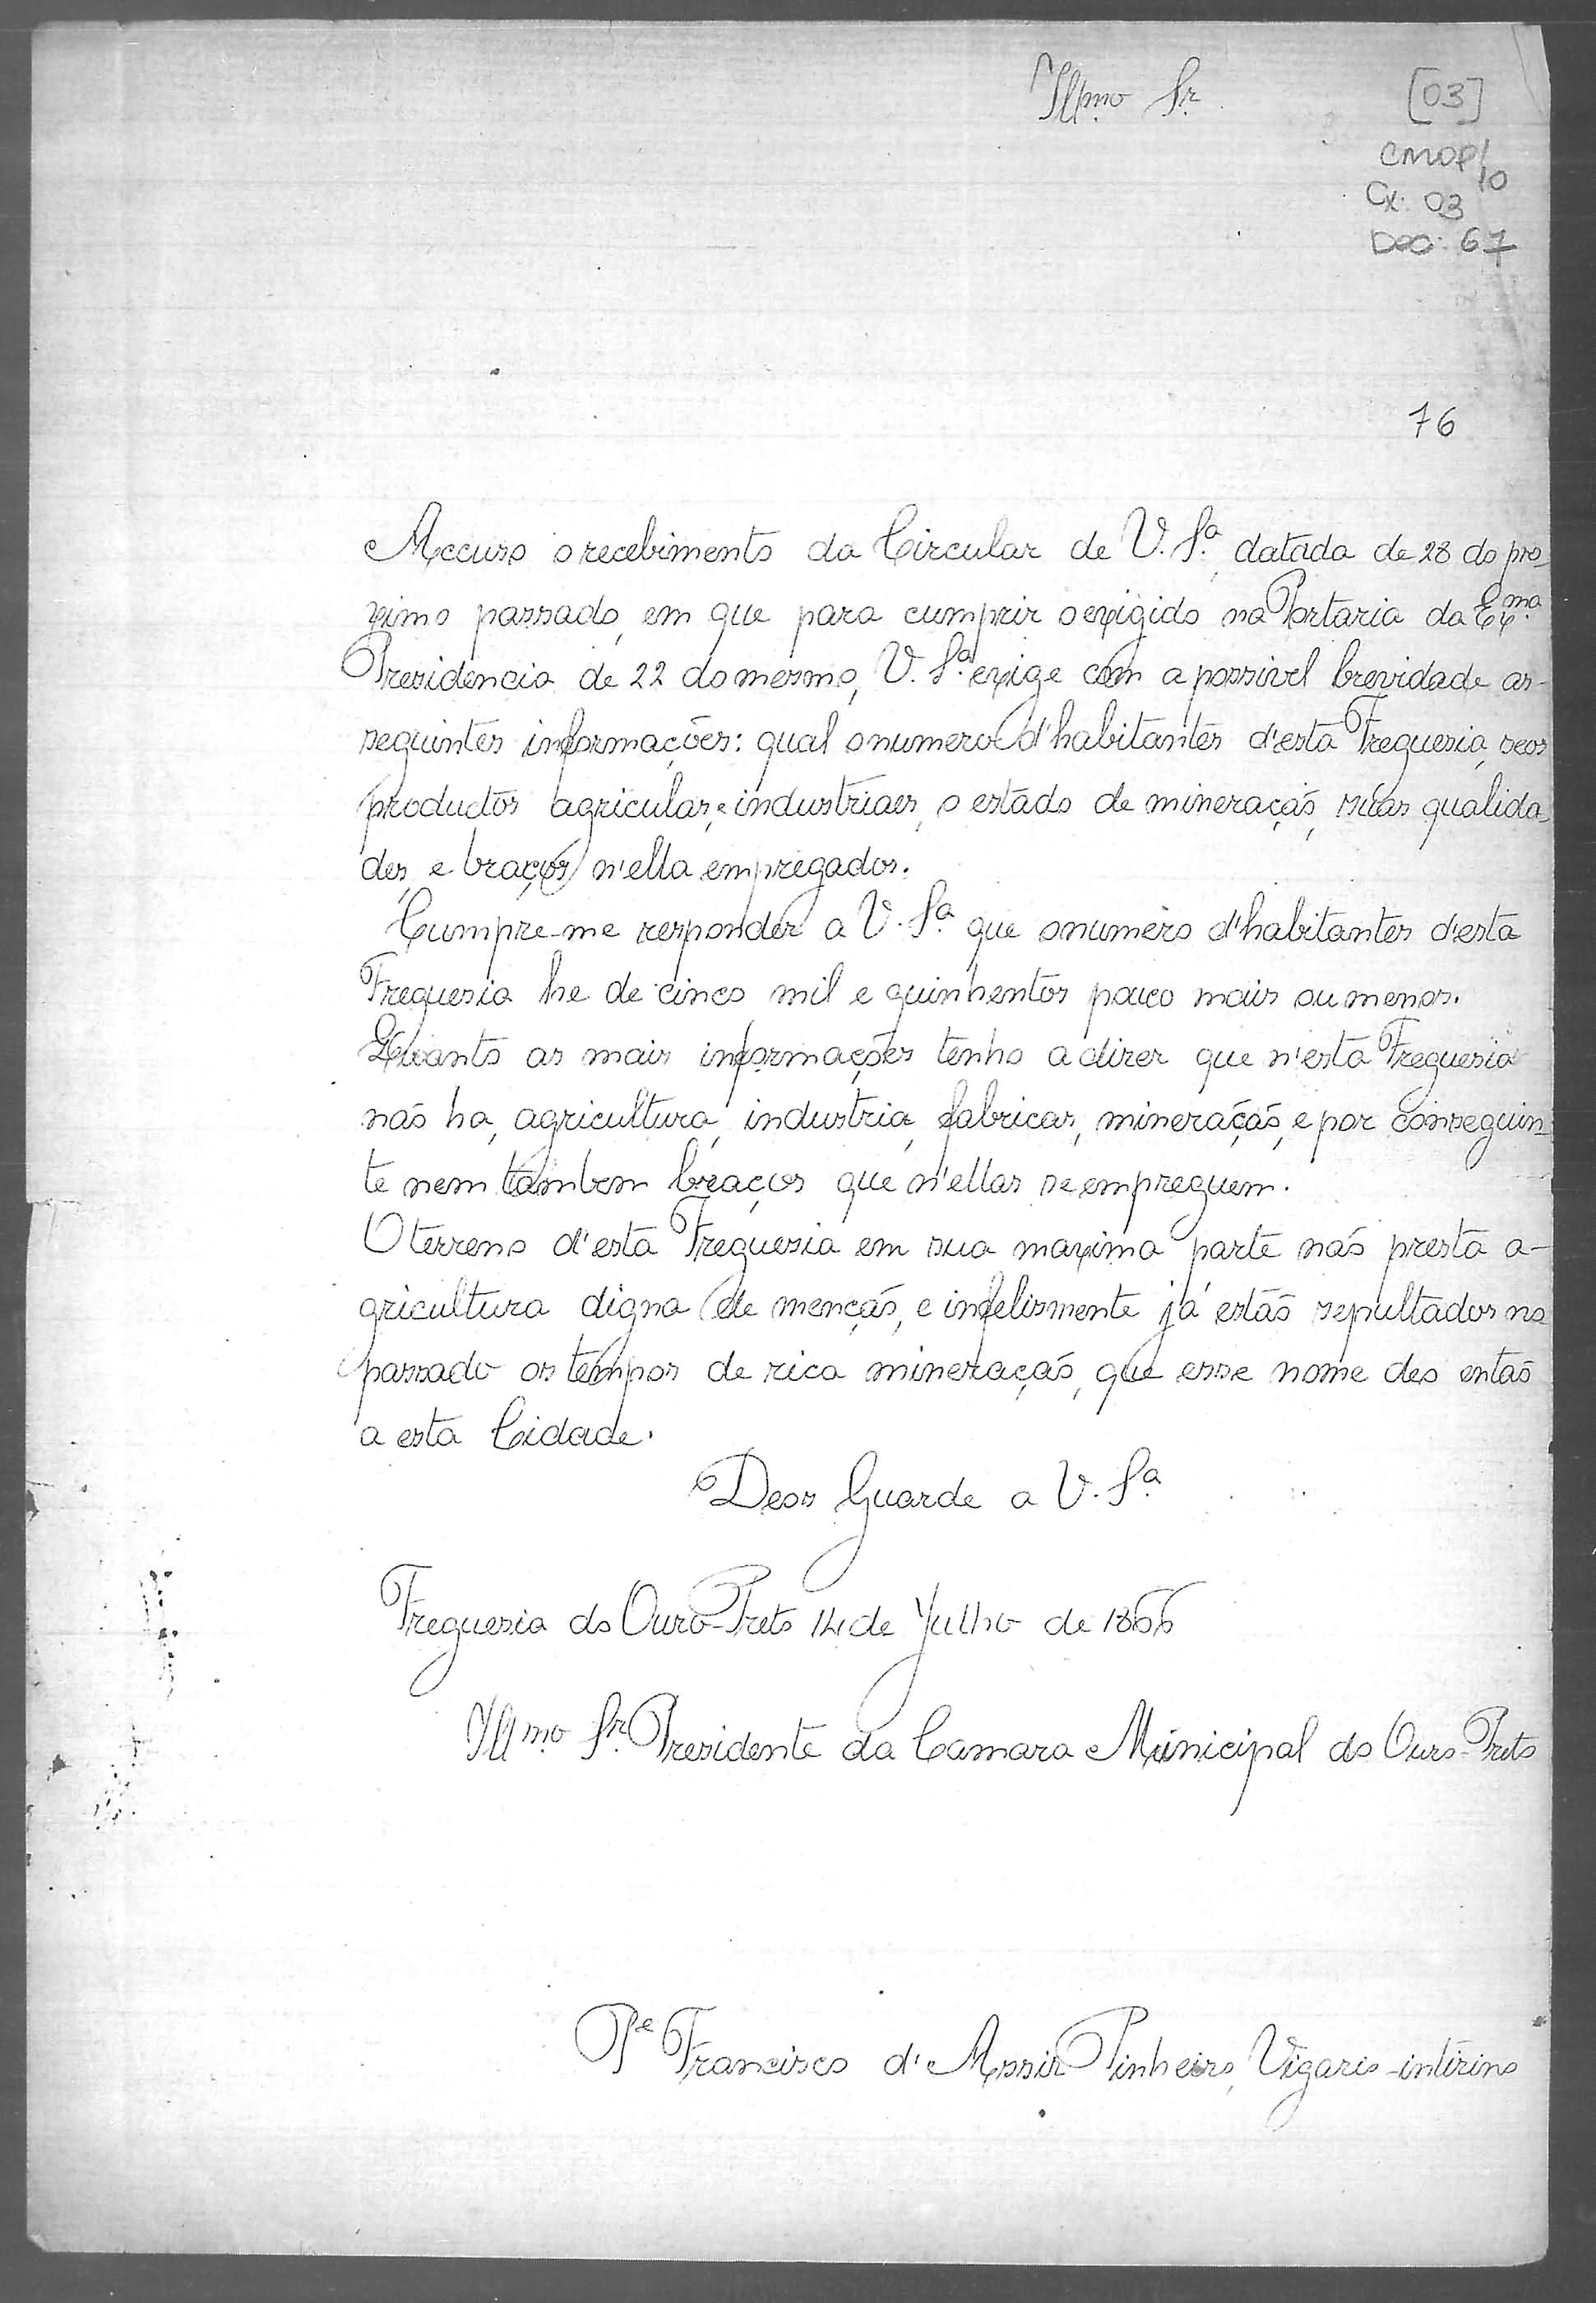 Illmo Sr.
[03]
CMOP/
10
Cx. 03
Doc: 67
76
Accuso o recebimento da Circular de V. Sª, datada de 28 do pro-
ximo passado, em que para cumprir o exigido na Portaria da Exma
Presidencia de 22 do mesmo, V. Sª exige com a possivel brevidade as
seguintes informações: qual o numero d'habitantes d'esta Freguesia, seos
productos agriculas, e industriaes, o estado de mineração, suas qualida-
des, e braços n'ella empregados.
Cumpre-me responder a V. Sª que o numero d'habitantes d'esta
Freguesia he de cinco mil e quinhentos pouco mais ou menos.
Quanto as mais informações tenho a dizer que n'esta Freguesia
não ha, agricultura, industria, fabricas, mineração, e por conseguin-
te nem tambem braços que n'ellas se empreguem.
O terreno d'esta Freguesia em sua maxima parte não presta a-
gricultura digna de menção, e infelismente já estão sepultados no
passado os tempos de rica mineração, que esse nome deo então
a esta Cidade.
Deos Guarde a V. Sª
Freguesia do Ouro-Preto 14 de Julho de 1866
Illmo Sr. Presidente da Camara Municipal do Ouro-Preto
Pe Francisco d'Assis Pinheiro, Vigario-intirino